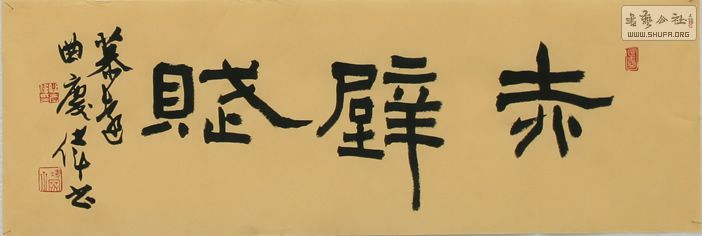 赤壁賦
慕遠
曲慶偉书
书艺公社
WWW.SHUFA.ORG